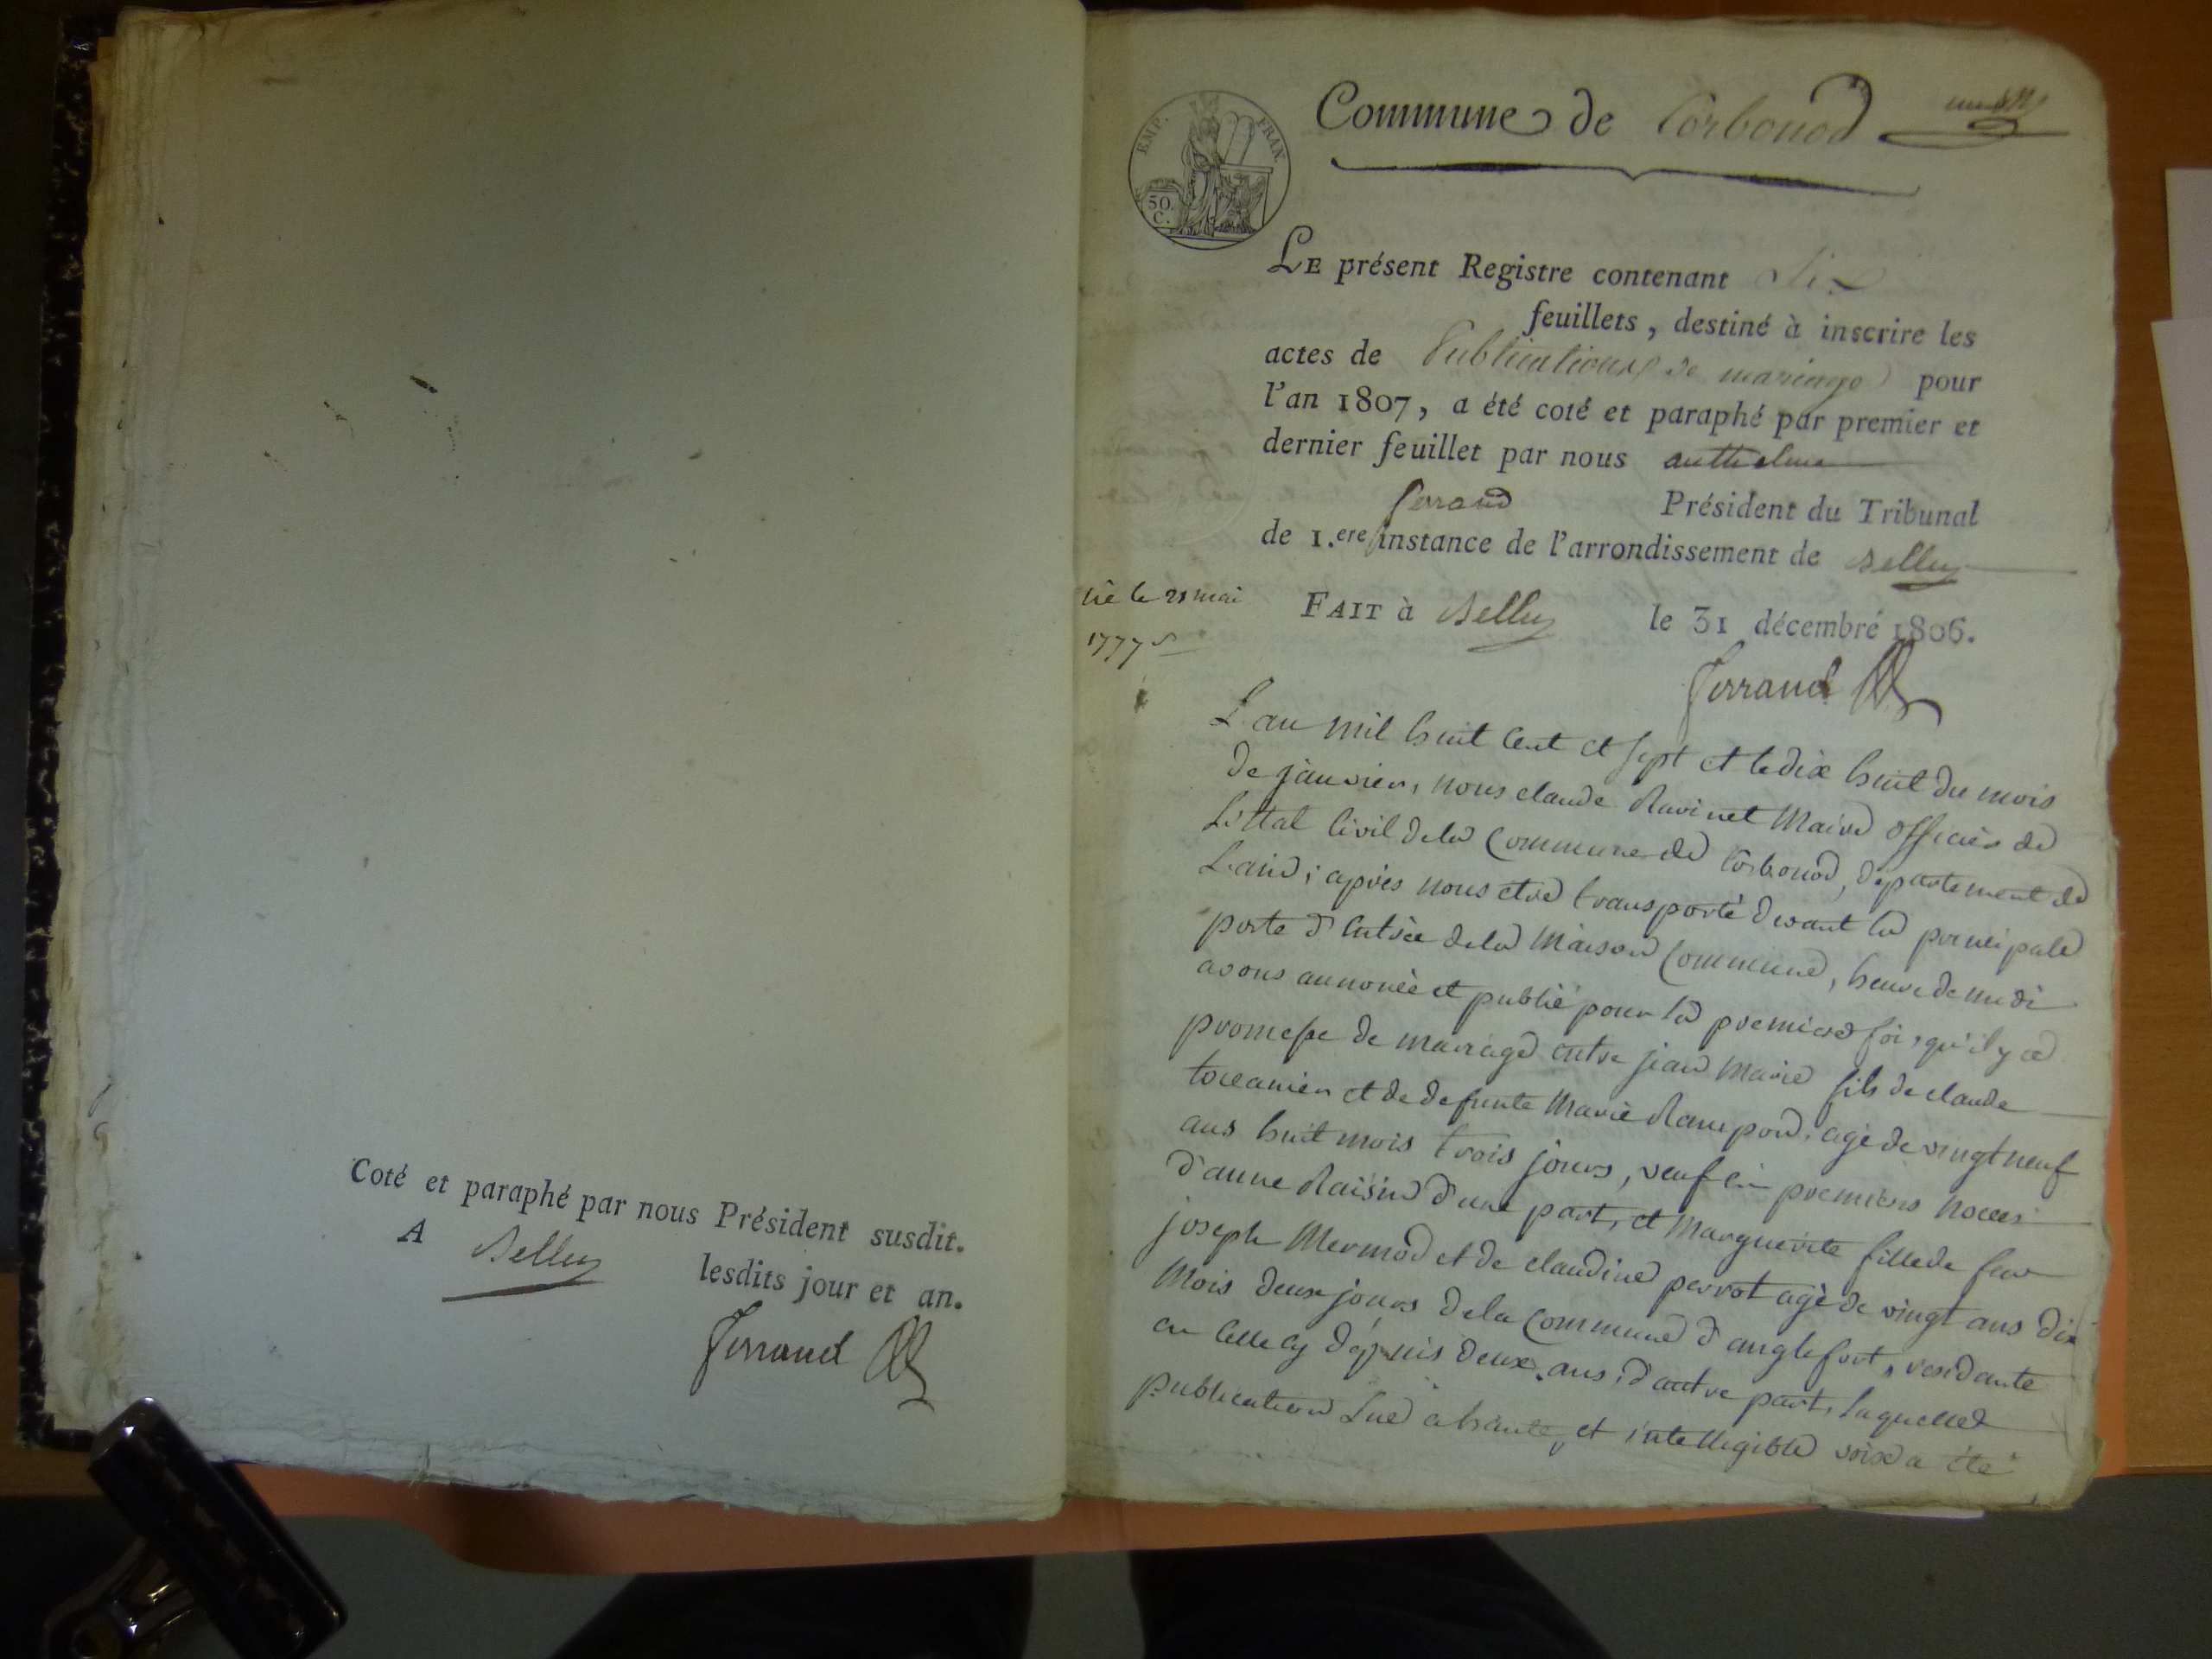 Coté et paraphé par nous Président susdit.
A Belley lesdits jour et an.
Ferrand
EMP. FRAN.
50.
C.
Commune de Corbonod
LE présent Registre contenant Six
feuillets, destiné à inscrire les
actes de Publications de mariage pour
l'an 1807, a été coté et paraphé par premier et
dernier feuillet par nous anthelme
ferrand Président du Tribunal
de 1.ere instance de l'arrondissement de Belley
FAIT à Belley le 31 décembre 1806.
Ferrand
né le 21 mai
1777
L'an mil huit cent et sept et le dix huit du mois
de janvier, nous claude Ravinet Maire officier de
L'Ettat Civil de la Commune de Corbonod, departement de
L'ain; après nous etre transporté devant la principale
porte d'Entrée de la Maison Commune, heure de midi
avons annoncé et publié pour la premiere foi, qu'il y a
promesse de mariage entre jean Marie fils de claude
toccanier et de defunte Marie Rampon, agé de vingt neuf
ans huit mois trois jours, veuf en premiers noces
d'anne Raisin d'une part, et Marguerite fille de feu
joseph Mermod et de claudine perrot agé de vingt ans dix
Mois deux jours de la Commune d'anglefort, residante
en Celle cy depuis deux ans, d'autre part, laquelle
publication Lue a haute et intelligible voix a été